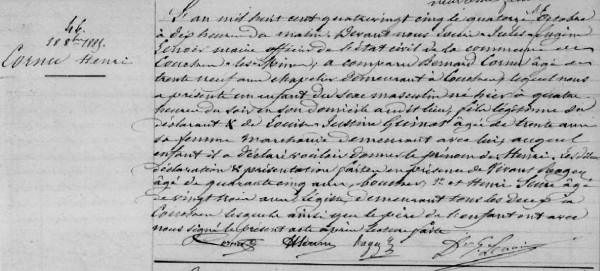 46
Cornu Henri
L'an mil huit cent quatre vingt cinq le quatorze Octobre
à dix heures du matin. Devant nous Jules Eugène
maire officier de l'état civil de la commune de
Couches les Mines; a comparu Bernard Cornu âgé de
trente neuf ans chapelier demeurant à Couches, lequel nous
a présenté un enfant du sexe masculin né hier à quatre
heures du soir en son domicile audit lieu, fils légitime du
déclarant & de Louise Justine Guinot âgée de trente ans
sa femme marchande demeurant avec lui, auquel
enfant il a déclaré vouloir donner le prénom de Henri. Les dites
déclaration & présentation faites en présence de
âgé de quarante cinq ans boucher, et Henri âgé
de vingt trois ans demeurant tous les deux à
Couches lesquels ainsi que le père de l'enfant ont avec
nous signé le présent acte après lecture faite
Cornu